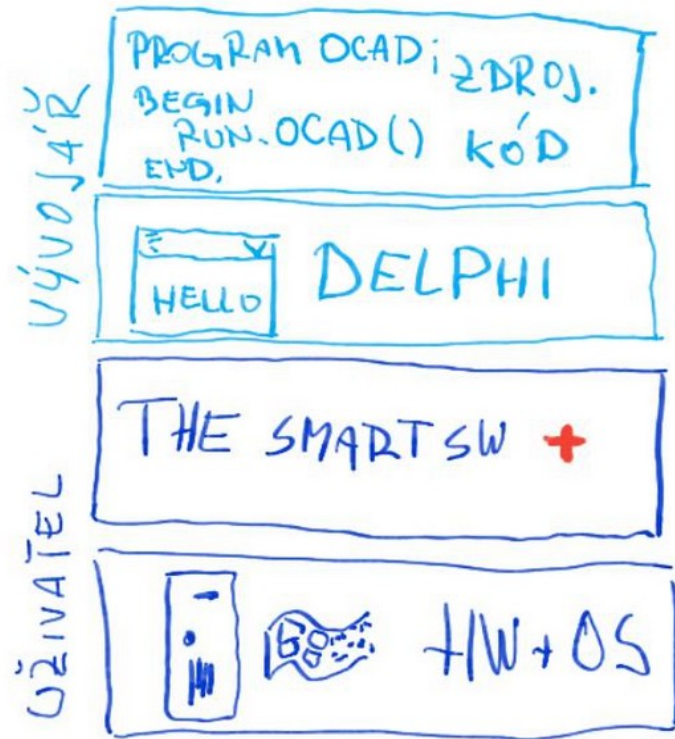 VÝVOJÁŘ
PROGRAM OCAD;
BEGIN
RUN.OCAD()
END.
ZDROJ.
KÓD
HELLO
DELPHI
UŽIVATEL
THE SMART SW
HW + OS